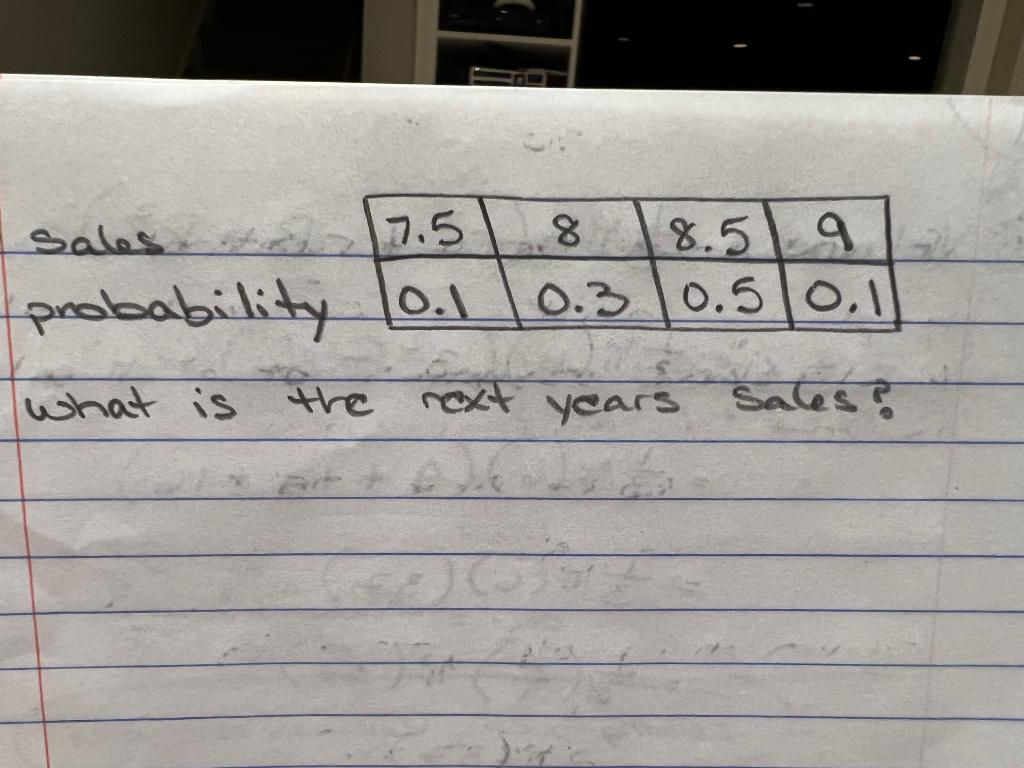 sales 7.5 8 8.5 9
probability 0.1 0.3 0.5 0.1
what is the next years sales?